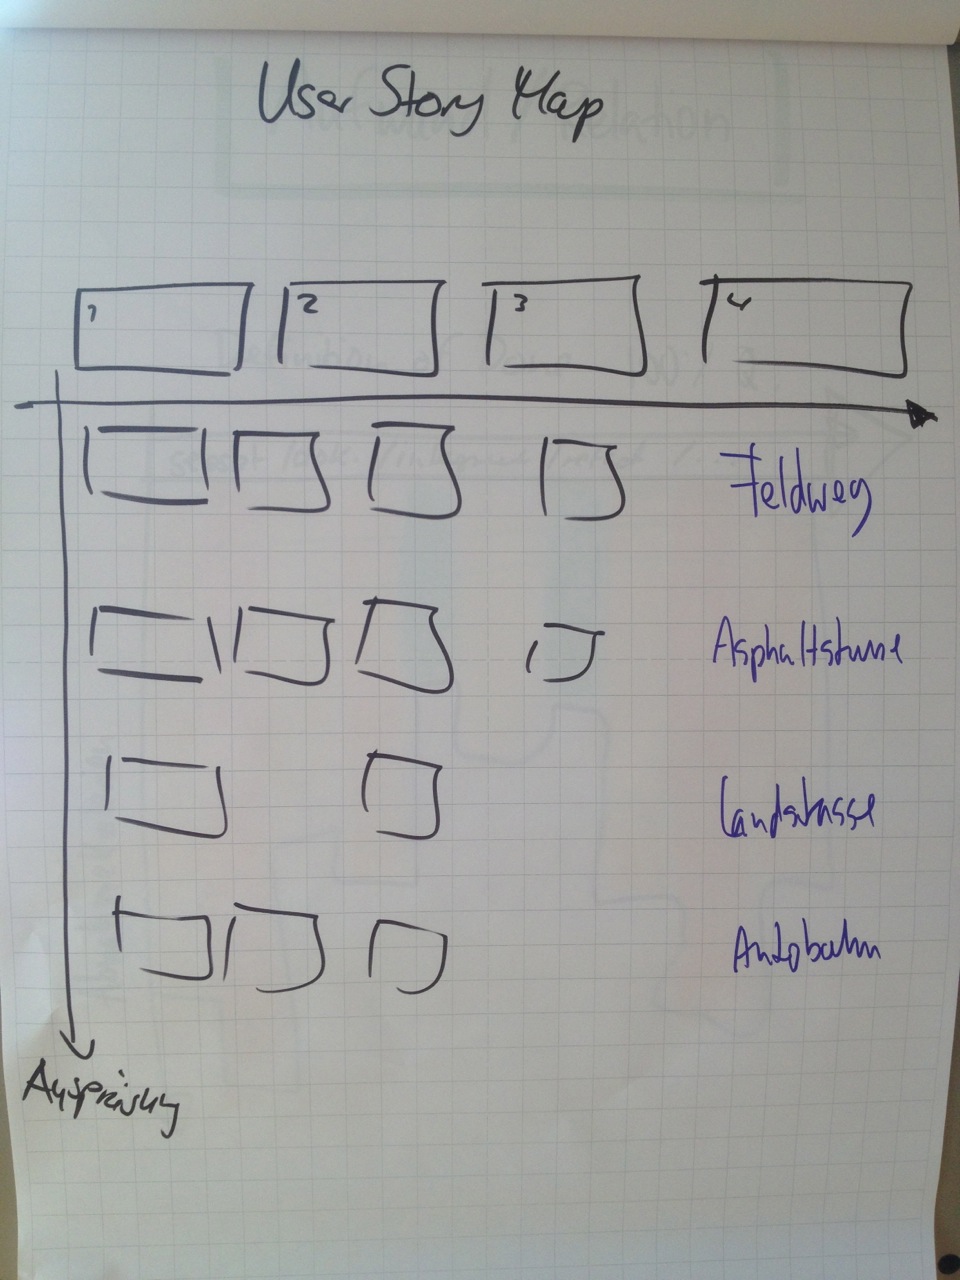 User Story Map
1 2 3 4
Feldweg
Asphaltstrasse
Landstrasse
Autobahn
Ausprägung